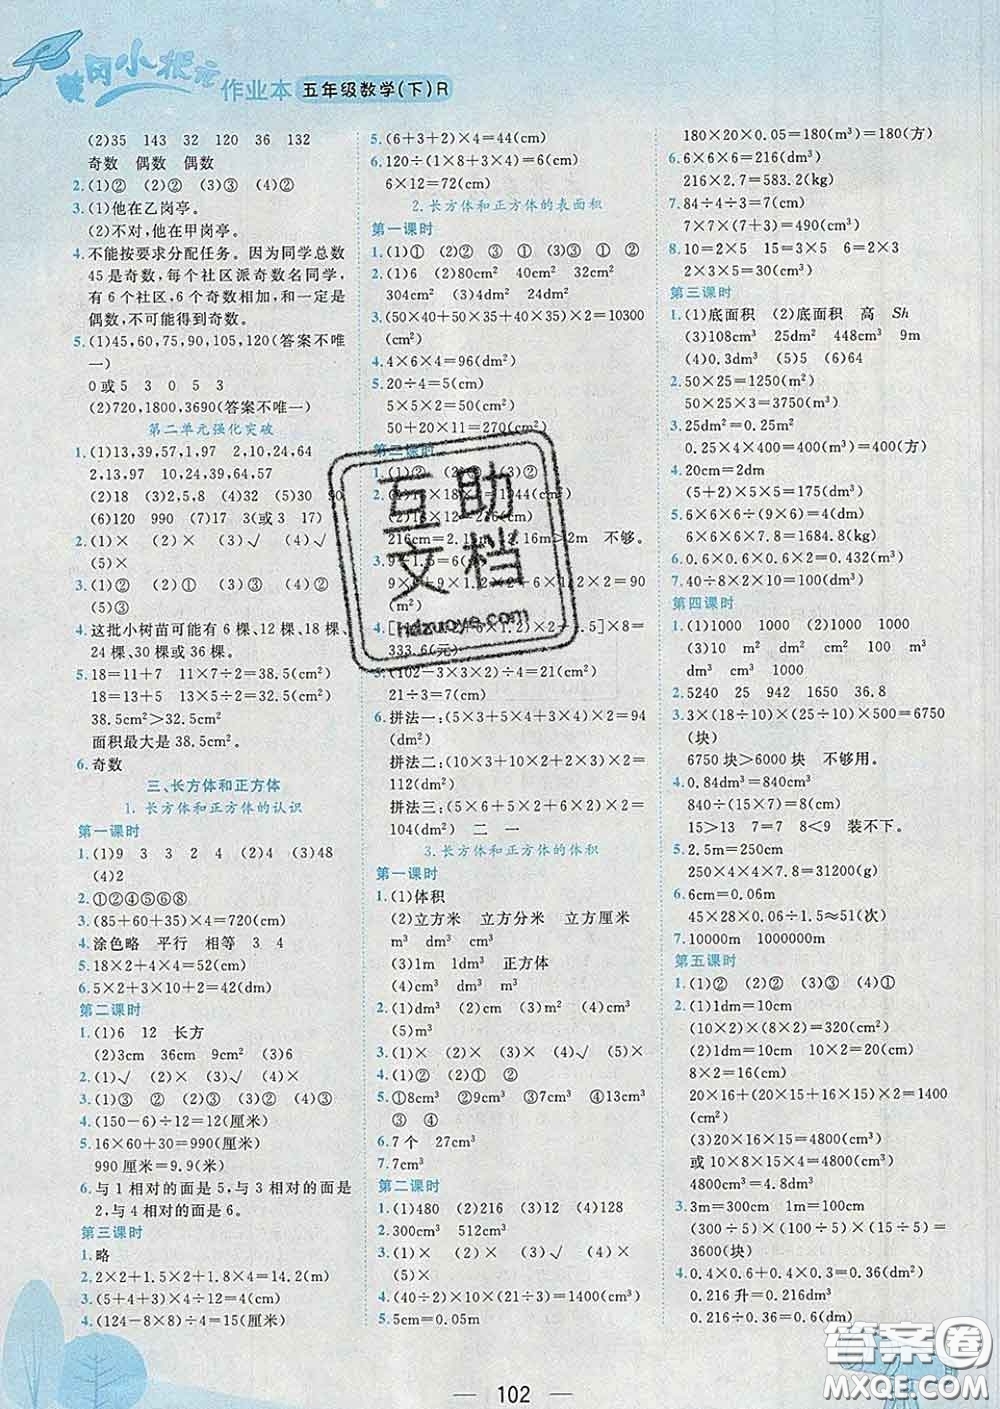 黄冈小状元
作业本 五年级数学(下)R
(2)35 143 32 120 36 132
奇数 偶数 偶数
2.(1)② (2)② (3)③ (4)②
3.(1)他在乙岗亭。
(2)不对,他在甲岗亭。
4.不能按要求分配任务。因为同学总数
45是奇数,每个社区派奇数名同学,
有6个社区,6个奇数相加,和一定是
偶数,不可能得到奇数。
5.(1)45,60,75,90,105,120(答案不唯
一)
0或5 3 0 5 3
(2)720,1800,3690(答案不唯一)
第二单元强化突破
1.(1)13,39,57,1,97 2,10,24,64
2,13,97 10,39,24,57,64
(2)18 (3)2,5 (4)2 (5)90
(6)120 990 (7)17 3(或3 17)
2.(1)× (2)× (3)√ (4)√
(5)×
3.(1)② (2)① (3)③ (4)②
(5)③
4.这批小树苗可能有6棵、12棵、18棵、
24棵、30棵或36棵。
5.18=11+7 11×7÷2=38.5(cm²)
18=13+5 13×5÷2=32.5(cm²)
38.5cm²>32.5cm²
面积最大是38.5cm²。
6.奇数
三、长方体和正方体
1.长方体和正方体的认识
第一课时
1.(1)9 3 3 2 4 (2)4 (3)48
(4)2
2.①②④⑤⑥⑧
3.(85+60+35)×4=720(cm)
4.涂色略 平行 相等 3 4
5.18×2+4×4=52(cm)
6.5×2+3×10+2=42(dm)
第二课时
1.(1)6 12 长方
(2)3cm 36cm 9cm² (3)6
2.(1)√ (2)× (3)√ (4)×
3.(1)③ (2)② (3)② (4)③
4.(150-6)÷12=12(厘米)
5.16×60+30=990(厘米)
990厘米=9.9(米)
6.与1相对的面是5,与3相对的面是
2,与4相对的面是6。
第三课时
1.略
2.2×2+1.5×2+1.8×4=14.2(m)
3.(5+4+3)×4=48(cm)
4.(124-8×8)÷4=15(厘米)
5.(6+3+2)×4=44(cm)
6.120÷(1×8+3×4)=6(cm)
6×12=72(cm)
2.长方体和正方体的表面积
第一课时
1.(1)① ② ③ ③ ① ②
2.(1)6 (2)80cm² 40cm² 32cm²
304cm² (3)4dm² 24dm²
3.(50×40+50×35+40×35)×2=10300
(cm²)
4.4×6×4=96(dm²)
5.20÷4=5(cm)
5×5×2=50(cm²)
50+20×11=270(cm²)
第二课时
216cm=2.16m 2.16m>2m 不够。
333.6(元)
5.(102-3×3×2)÷4=21(cm)
21÷3=7(cm)
6.拼法一:(5×3+5×4+3×4)×2=94
(dm²)
拼法二:(10×3+10×2+2×3)×2=
112(dm²)
拼法三:(5×4+5×6+4×6)×2-
104(dm²) 二 一
3.长方体和正方体的体积
第一课时
1.(1)体积
(2)立方米 立方分米 立方厘米
m³ dm³ cm³
(3)1m 1dm³ 正方体
(4)cm³ dm³ m³
2.(1)dm³ (2)m³ (3)m³ (4)cm³
(5)m³
3.(1)× (2)× (3)√ (4)√ (5)×
4.(1)② (2)① (3)②
5.①8cm³ ②9cm³ ③7cm³ ④11cm³
③ ④
6.7个 27cm³
7.7cm³
第二课时
1.(1)480 (2)216 (3)12 (4)128
2.300cm³ 512cm³
3.(1)× (2)× (3)√ (4)×
(5)×
4.(40÷2)×10×(21÷3)=1400(cm³)
5.5cm=0.05m
180×20×0.05=180(m³)=180(方)
6.6×6×6=216(dm³)
216×2.7=583.2(kg)
7.84÷4÷3=7(cm)
7×7×(7+3)=490(cm³)
8.10=2×5 15=3×5 6=2×3
2×3×5=30(cm³)
第三课时
1.(1)底面积 (2)底面积 高 Sh
(3)108cm³ 25dm² 448cm³ 9m
(4)3.5 (5)6 (6)64
2.50×25=1250(m²)
50×25×3=3750(m³)
3.25dm²=0.25m²
0.25×4×400=400(m³)=400(方)
4.20cm=2dm
(5+2)×5×5=175(dm³)
5.6×6×6÷(9×6)=4(cm)
6×6×6×7.8=1684.8(g)
6.0.6×0.6×0.6×2=0.432(m³)
7.40÷8×2×10=100(cm³)
第四课时
1.(1)1000 1000 (2)1000 1000
(3)10 m² dm² cm² 100 m³
dm³ cm³ 1000
2.5240 25 942 1650 36.8
3.3×(18÷10)×(25÷10)×500=6750
(块)
6750块>6000块 不够用。
4.0.84dm³=840cm³
840÷(15×7)=8(cm)
15>13 7=7 8<9 装不下。
5.2.5m=250cm
250×4×4×7.8=31200(g)
6.6cm=0.06m
45×28×0.06÷1.5≈51(次)
7.10000m 1000000m
第五课时
1.(1)② (2)② (3)③ (4)①
2.(1)1dm=10cm
(10×2)×(8×2)=320(cm²)
(2)1dm=10cm 10×2=20(cm)
8×2=16(cm)
20×16+(20×15+16×15)×2=1400
(cm²)
(3)20×16×15=4800(cm³)
或10×8×15×4=4800(cm³)
4800cm³=4.8L
3.3m=300cm 1m=100cm
(300÷5)×(300÷5)×(100÷100)=
3600(块)
4.0.4×0.6+0.4×0.3=0.36(m²)
0.216升=0.216dm³
0.216÷0.36=0.6(dm)
102
互助
文档
Hdzuoye.com
答案圈
MXQE.COM